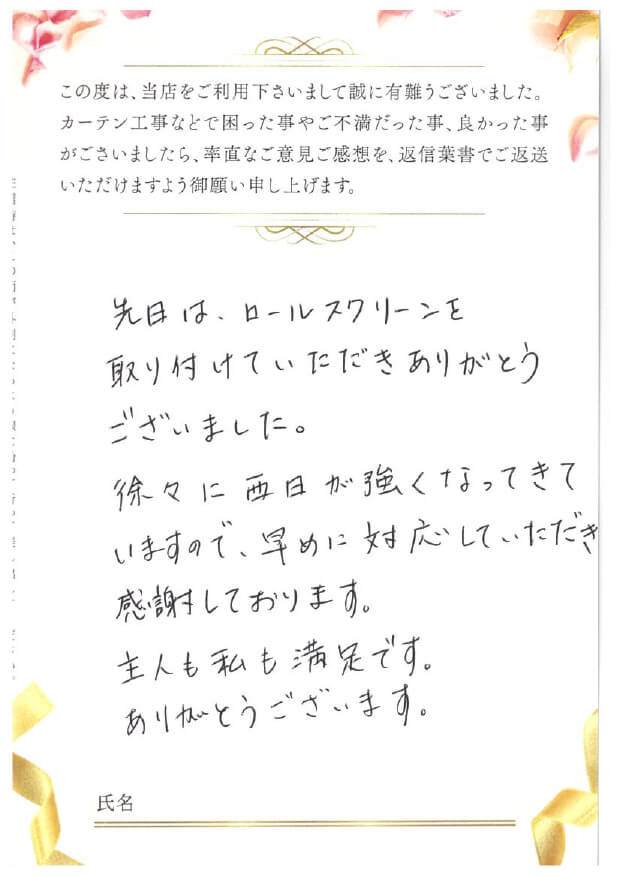 この度は、当店をご利用下さいまして誠に有難うございました。
カーテン工事などで困った事やご不満だった事、良かった事
がございましたら、率直なご意見ご感想を、返信葉書でご返送
いただけますよう御願い申し上げます。
先日は、ロールスクリーンを
取り付けていただきありがとう
ございました。
徐々に西日が強くなってきて
いますので、早めに対応していただき
感謝しております。
主人も私も満足です。
ありがとうございます。
氏名